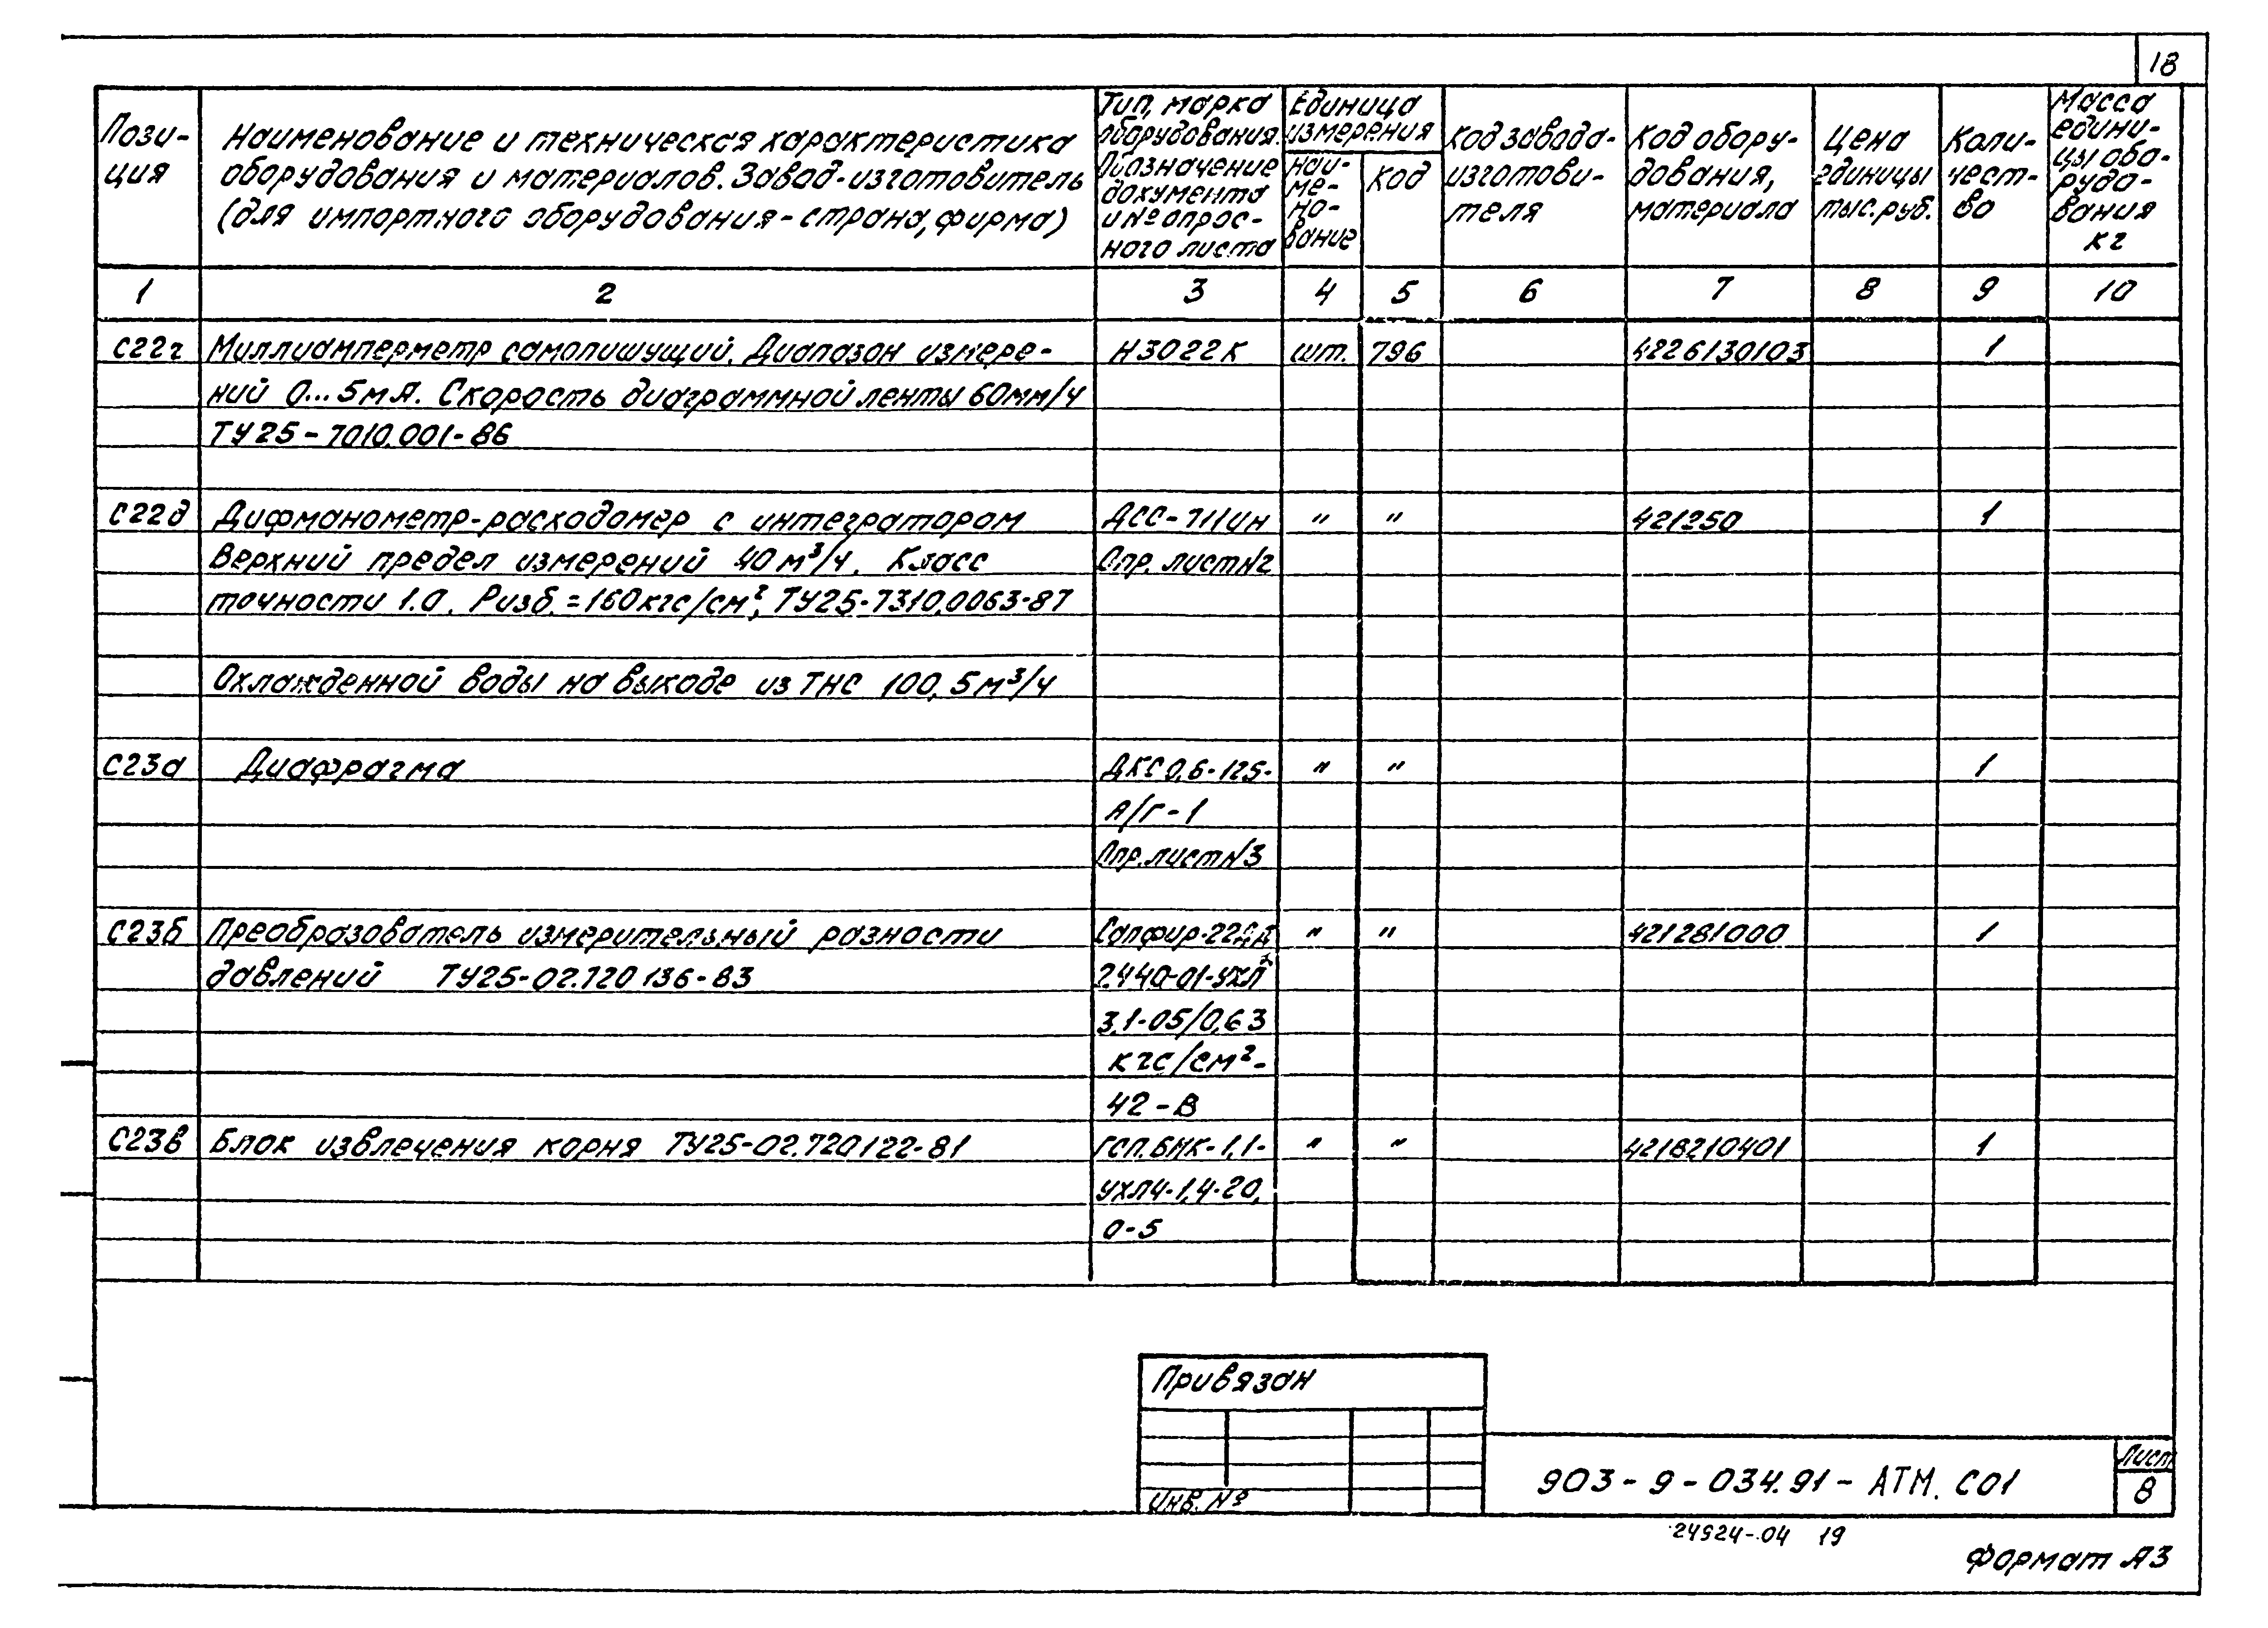 18
Пози-
ция
Наименование и техническая характеристика
оборудования и материалов. Завод-изготовитель
(для импортного оборудования-страна, фирма)
Тип, марка
оборудования.
Обозначение
документа
и № опрос-
ного листа
Единица
измерения
Наи-
ме-
но-
вание
Код
Код завода-
изготови-
теля
Код обору-
дования,
материала
Цена
единицы
тыс. руб.
Коли-
чест-
во
Масса
едини-
цы обо-
рудо-
вания
кг
1 2 3 4 5 6 7 8 9 10
С22г Миллиамперметр самопишущий. Диапазон измере- Н3022К шт. 796 4226130103 1
ний 0...5мА. Скорость диаграммной ленты 60мм/ч
ТУ25-7010.001-86
С22д Дифманометр-расходомер с интегратором ДСС-711ин " " 421250 1
Верхний предел измерений 40 м³/ч. Класс Опр. лист№2
точности 1.0. Ризб.=160кгс/см², ТУ25-7310.0063-87
Охлажденной воды на выходе из ТНС 100,5м³/ч
С23а Диафрагма ДКС0,6-125- " " 1
А/Г-1
Опр.лист№3
С23б Преобразователь измерительный разности Сапфир-22ДД " " 421281000 1
давлений ТУ25-02.720136-83 2440-01-УХЛ*
3,1-05/0,63
кгс/см²-
42-В
С23в Блок извлечения корня ТУ25-02.720122-81 ГСП.БИК-1,1- " " 4218210401 1
УХЛ4-1,4-20,
0-5
Привязан
Инв. №
903-9-034.91-АТМ.С01
Лист
8
24924-04 19
Формат А3